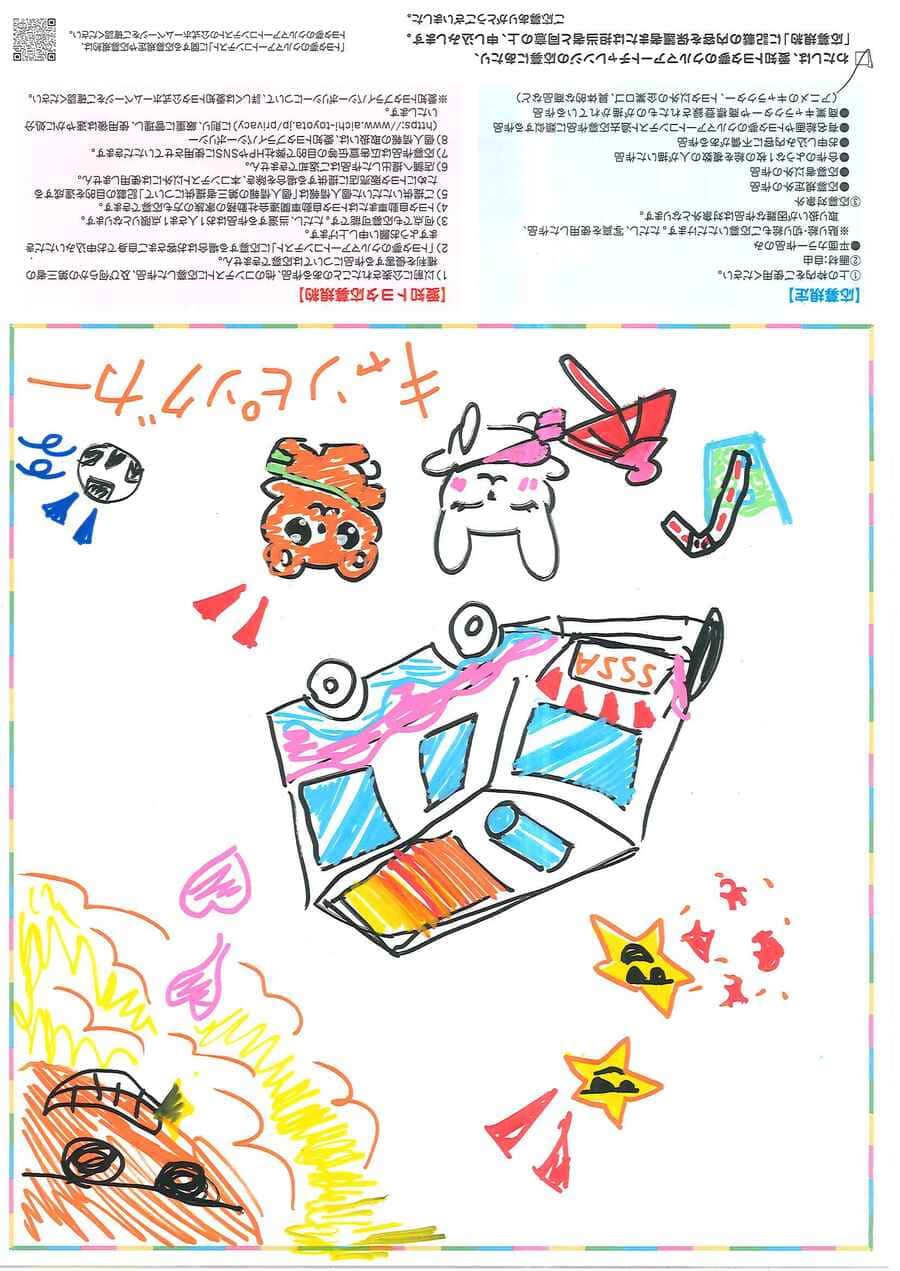 SSSA
キャンピッグカー
【応募規定】
①上の枠内をご使用ください。
②画材:自由
●平面カラー作品のみ
※貼り絵・切り絵もご応募いただけます。ただし、写真を使用した作品、
取り扱いが困難な作品は対象外となります。
③応募対象外
●応募規定外の作品
●応募者以外の作品
●合作のような1枚の絵を複数の人が描いた作品
●お申し込み内容に不備がある作品
●有名絵画やトヨタ夢のクルマアートコンテスト過去応募作品に類似する作品
●商業キャラクターや商標登録されたものが描かれている作品
(アニメのキャラクター、トヨタ以外の企業ロゴ、具体的な商品など)
【愛知トヨタ応募規約】
1)以前に公表されたことのある作品、他のコンテストに応募した作品、及び何らかの第三者の
権利を侵害する作品については応募できません。
2)「トヨタ夢のクルマアートコンテスト」に応募する場合はお客さまご自身でお申込みいただき
ますようお願い申し上げます。
3)何点でも応募可能です。ただし、当選する作品はお1人さま1点限りとなります。
4)トヨタ自動車またはトヨタ自動車関連会社勤務の家族の方も応募できます。
5)ご提供いただいた個人情報は「個人情報の第三者提供について」記載の目的を達成する
ためにトヨタ販売店に提供する場合を除き、本コンテスト以外には使用しません。
6)店舗へ提出した作品はご返却できません。
7)応募作品は広告宣伝等の目的で弊社HPやSNSに使用させていただきます。
8)個人情報の取扱いは、愛知トヨタプライバシーポリシー
(https://www.aichi-toyota.jp/privacy)に則り、厳重に管理し、使用後は速やかに処分
いたします。
※愛知トヨタプライバシーポリシーについて、詳しくは愛知トヨタ公式ホームページをご確認ください。
わたしは、愛知トヨタ夢のクルマアートチャレンジのご応募にあたり、
「応募規約」に記載の内容を保護者または担当者と同意の上、申し込みします。
ご応募ありがとうございました。
トヨタ夢のクルマアートコンテストに関する応募規定や応募規約は、
トヨタ夢のクルマアートコンテストの公式ホームページをご確認ください。